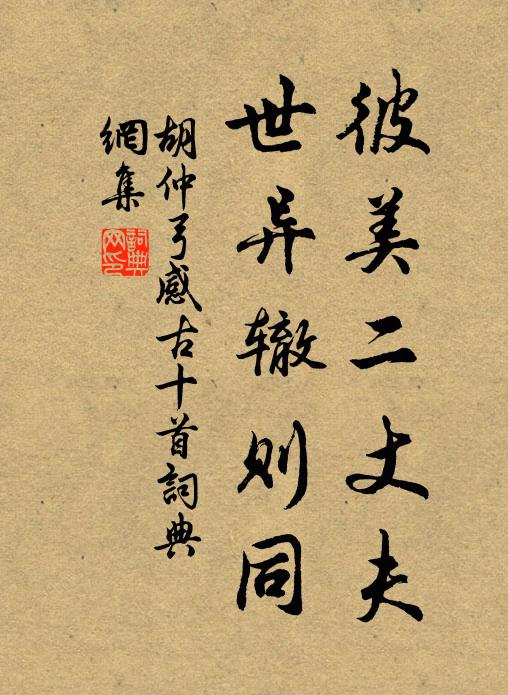 彼美二丈夫
世异辙则同
胡仲弓感古十首詞典
網集
詞典
网印